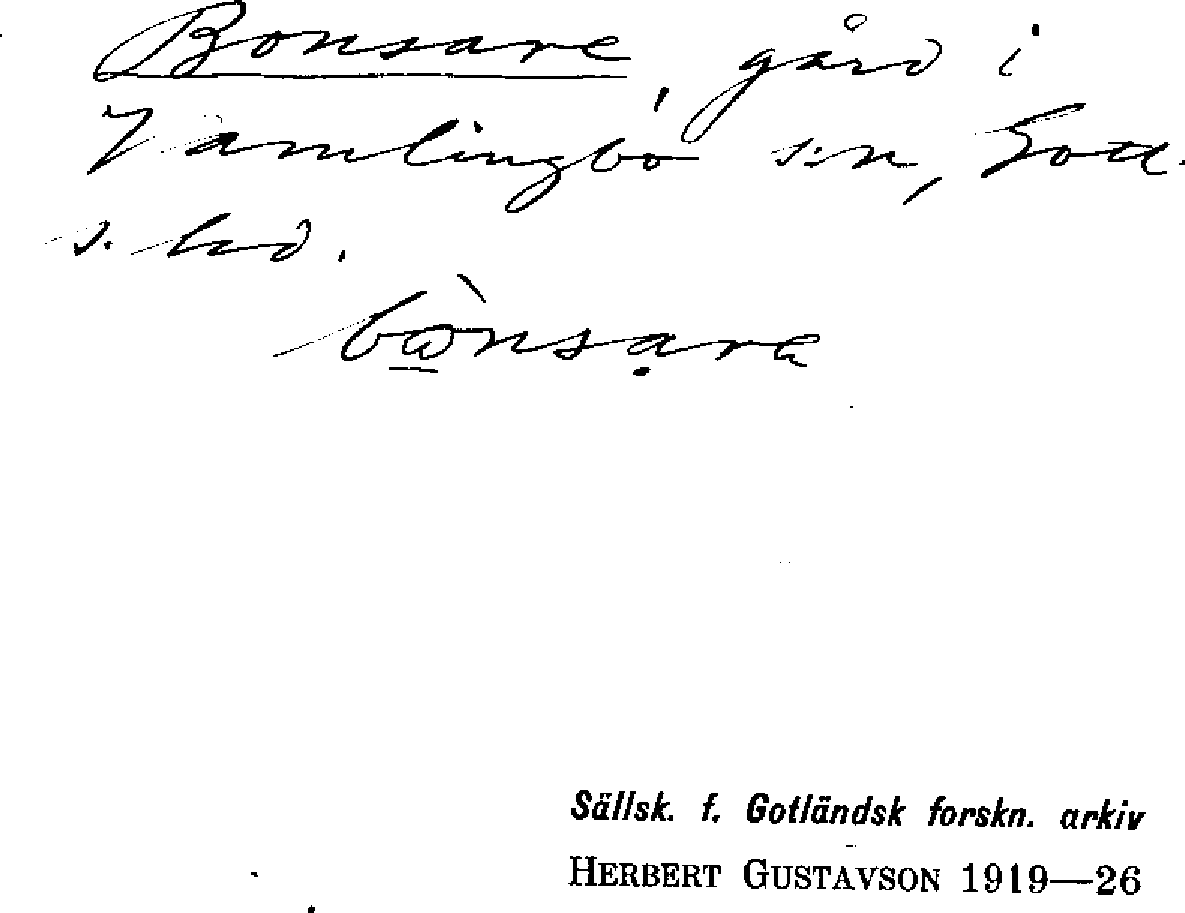 Bonsare, gård i
Vamlingbo s:n, Gotl.
s. hd.
bònsạre
Sällsk. f. Gotländsk forskn. arkiv
HERBERT GUSTAVSON 1919—26